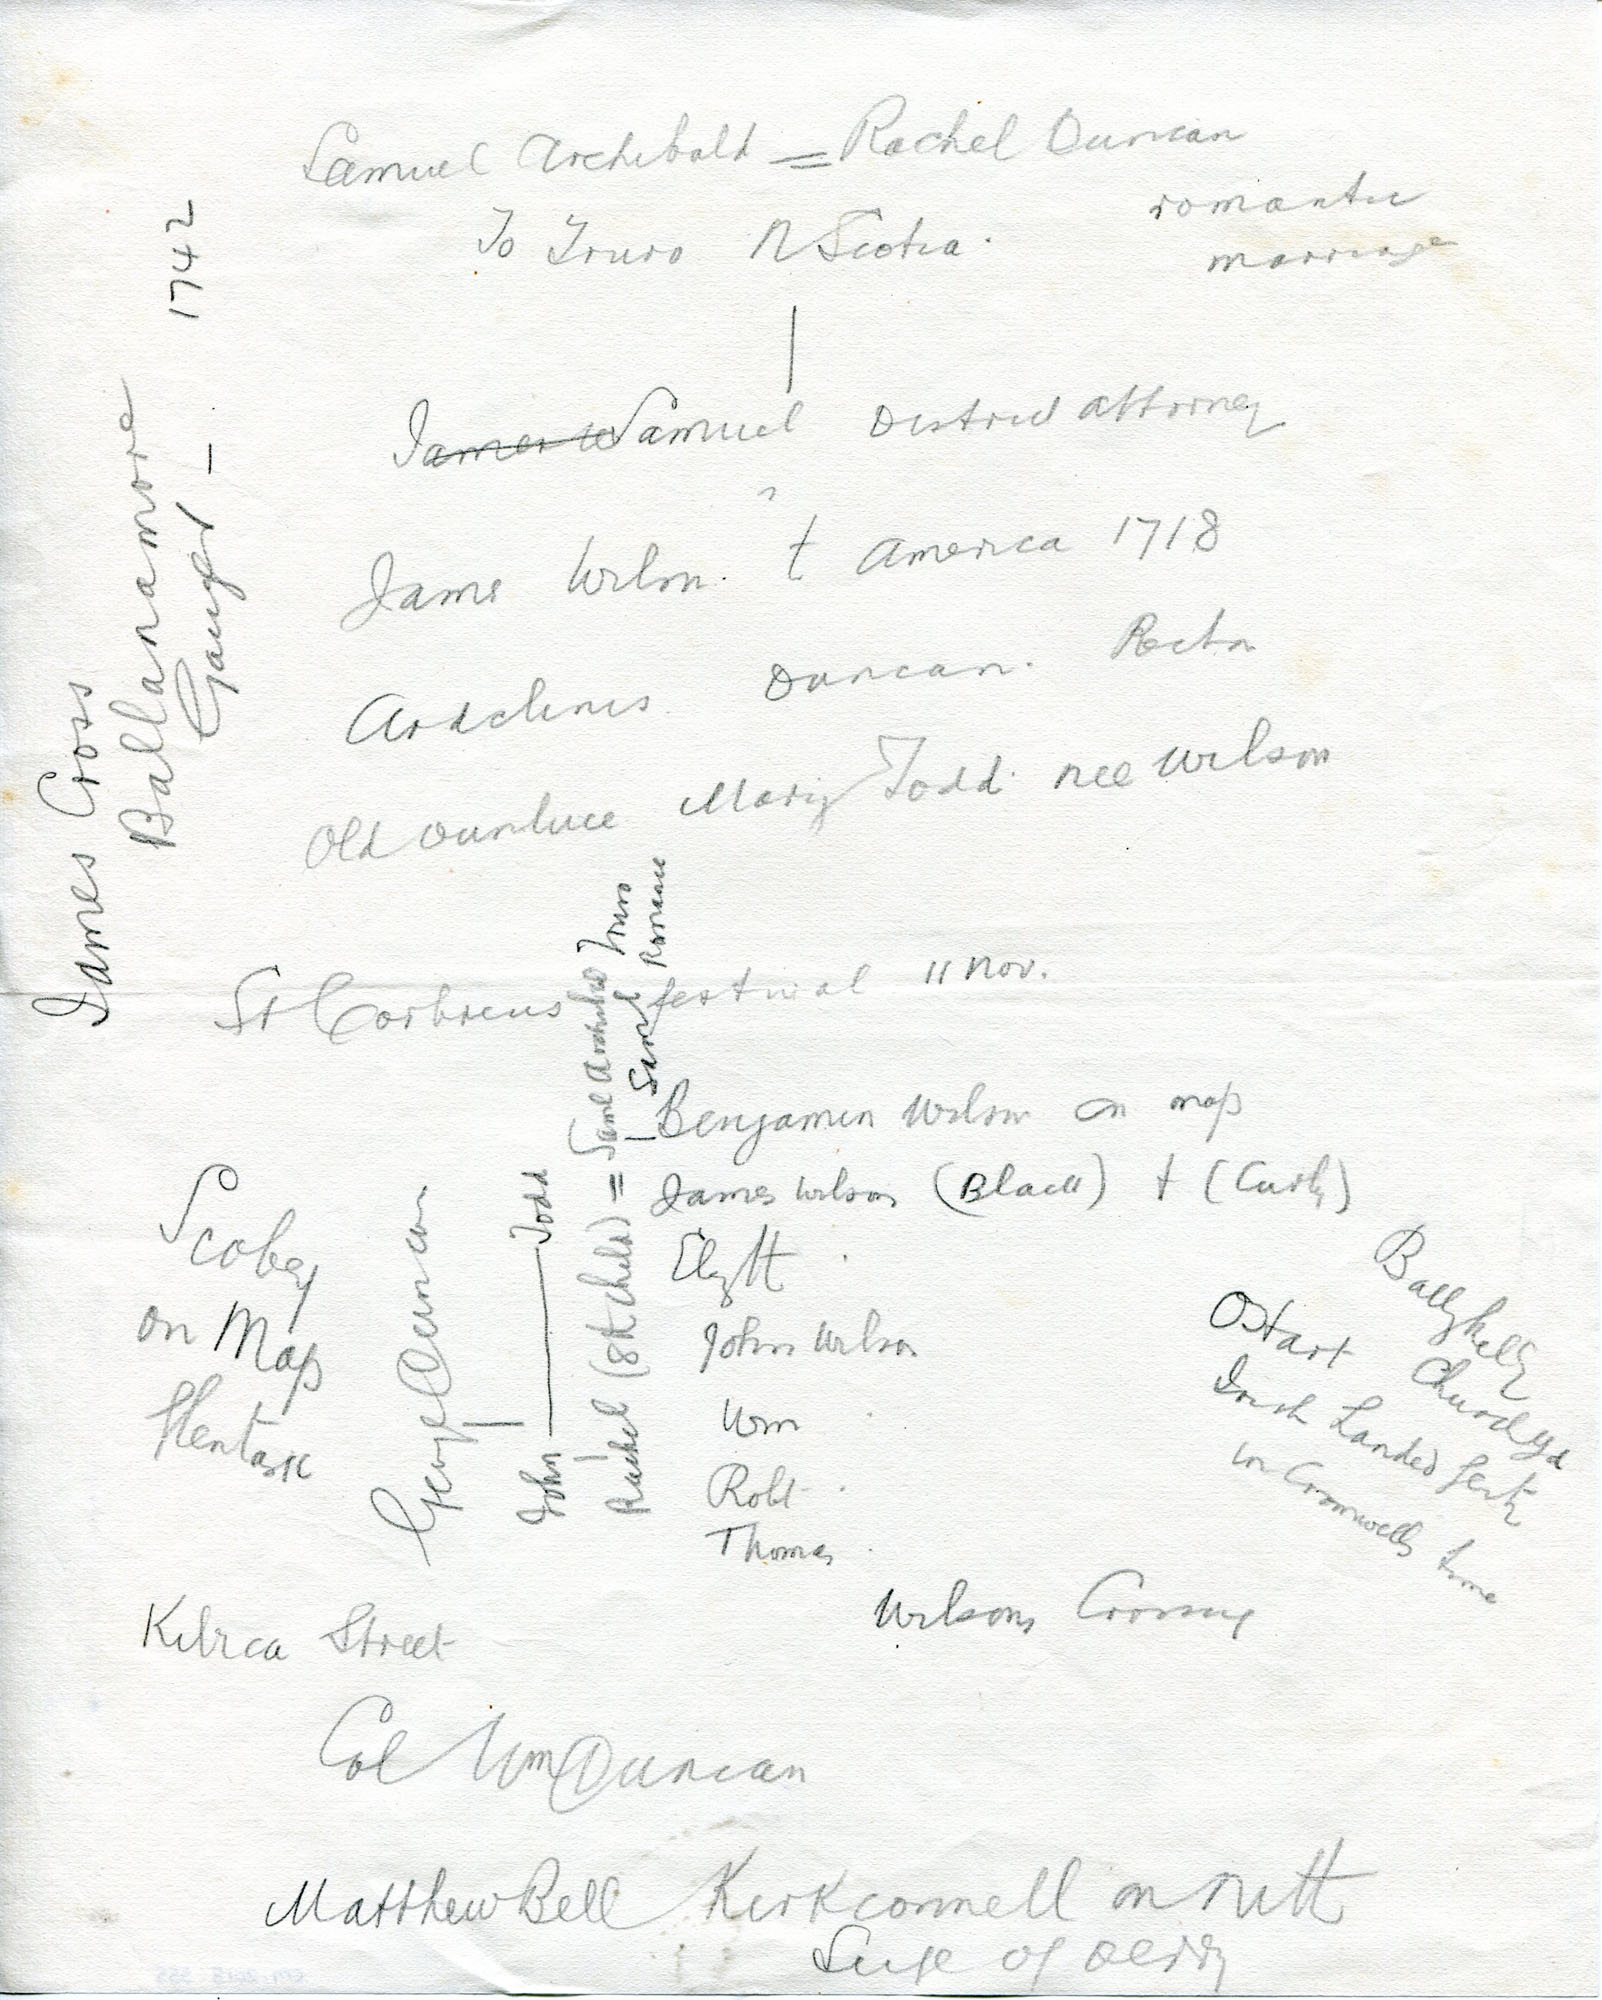 Samuel Archibald = Rachel Duncan
romantic
marriage
To Truro N Scotia.
James W Samuel District attorney
Jame Wilsn. t America 1718
Ardclinis Duncan. Rectn
Old Dunluce Mary Todd nee Wilson
James Cross
Ballanamore
Gauger – 1742
St Corbreus festival 11 Nov.
Benjamin Wilson on map
James Wilson (Black) + (Curly)
Elizth
John Wilson
Wm
Robt
Thomas
George Duncan
John — Todd
Rachel (8th child) = Saml Archibald Truro
Saml Romance
Scobey
on Map
Ballykelly
Churchyd
Irish Landed Gentry
in Cromwells time
Wilsons Crossing
Kilrea Street
Col Wm Duncan
Matthew Bell Kirkconnell on Nith
Siege of Derry